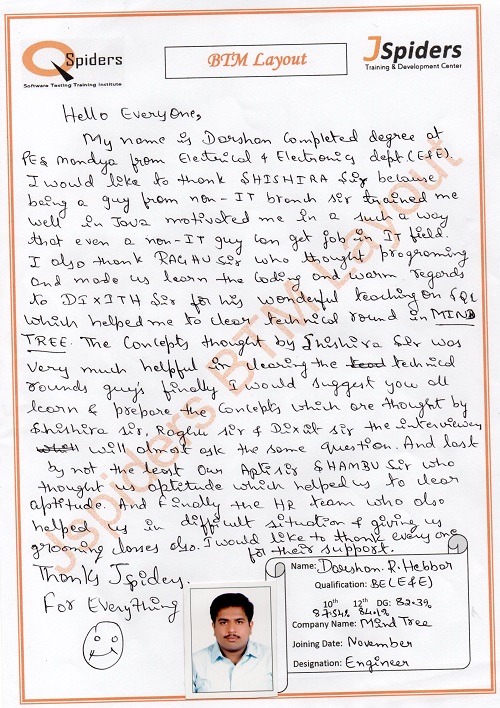 QSpiders
Software Testing Training Institute
BTM Layout
JSpiders
Training & Development Center
Hello EveryOne,
My name is Darshan Completed degree at
PES Mandya from Electrical & Electronics dept.(E&E).
I would like to thank SHISHIRA Sir because
being a guy from non-IT branch sir trained me
well in Java motivated me in a such a way
that even a non-IT guy can get job in IT field.
I also thank RAGHU Sir who thought programing
and made us learn the coding and warm regards
to DIXITH Sir for his wonderful teaching on SQL
which helped me to clear technical round in MIND
TREE. The Concepts thought by Shishira Sir was
very much helpful in clearing the technical
rounds guy's finally I would suggest you all
learn & prepare the Concepts which are thought by
Shishira sir, Raghu sir & Dixit sir the interviewer
will almost ask the same question. And last
by not the least Our Apti sir SHAMBU Sir who
thought us aptitude which helped us to clear
aptitude. And finally the HR team who also
helped us in difficult situation & giving us
grooming classes also. I would like to thank every one
for their support.
Thanks Jspiders.
For Everything
Name: Darshan. R. Hebbar
Qualification: BE(E&E)
10th 12th DG: 82.3%
87.54% 84.1%
Company Name: Mind Tree
Joining Date: November
Designation: Engineer
Jspiders BTM Layout